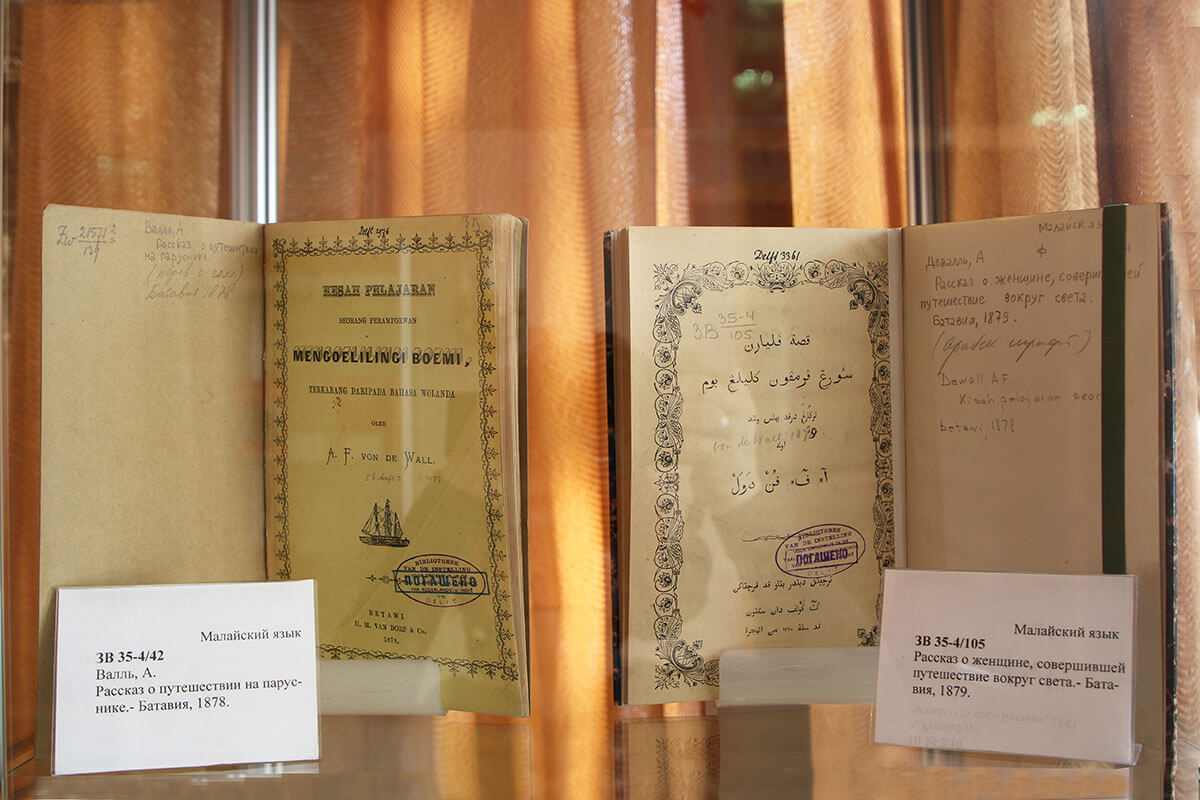 21571
Валль, А.
Рассказ о путешествии
на паруснике.
(перев. с голл.)
Батавия, 1878
Delft 2976
KESAH PELAJARAN
SEORANG PERAMPOEWAN
MENGOELILINGI BOEMI,
TERKARANG DARIPADA BAHASA WOLANDA
OLEH
A. F. VON DE WALL.
BIBLIOTHEEK
VAN DE INSTELLING
ПОГАШЕНО
DELFT
BETAWI
H. M. VAN DORP & Co.
1878.
Малайский язык
ЗВ 35-4/42
Валль, А.
Рассказ о путешествии на парус-
нике.- Батавия, 1878.
Delft 3361
ЗВ 35-4
105
قصة فليارن
سئورڠ ڤرمڤون كليلڠ بوم
تركارڠ درڤد بهاس ولند
von de Wall, 1879
اوله
آ، ف، فن دول
BIBLIOTHEEK
VAN DE INSTELLING
ПОГАШЕНО
DELFT
Малайск. яз
Ф
Девалль, А
Рассказ о женщине, совершившей
путешествие вокруг света.
Батавия, 1879.
(арабск шрифт)
Dewall A.F.
Kisah pelayaran seor
betawi, 1878
Малайский язык
ЗВ 35-4/105
Рассказ о женщине, совершившей
путешествие вокруг света.- Бата-
вия, 1879.